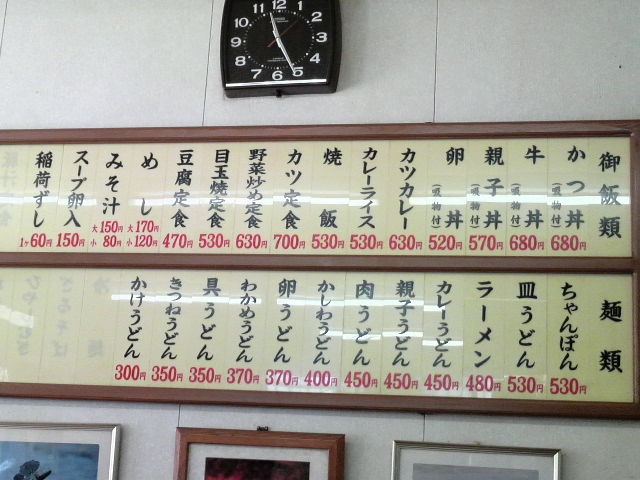 御飯類
かつ丼(吸物付) 680円
牛丼(吸物付) 680円
親子丼(吸物付) 570円
卵丼(吸物付) 520円
カツカレー 630円
カレーライス 530円
焼飯 530円
カツ定食 700円
野菜炒め定食 630円
目玉焼定食 530円
豆腐定食 470円
めし 大170円 小120円
みそ汁 大150円 小80円
スープ卵入 150円
稲荷ずし 1ケ60円
麺類
ちゃんぽん 530円
皿うどん 530円
ラーメン 480円
カレーうどん 450円
親子うどん 450円
肉うどん 450円
かしわうどん 400円
卵うどん 370円
わかめうどん 370円
具うどん 350円
きつねうどん 350円
かけうどん 300円
12
1
2
3
4
5
6
7
8
9
10
11